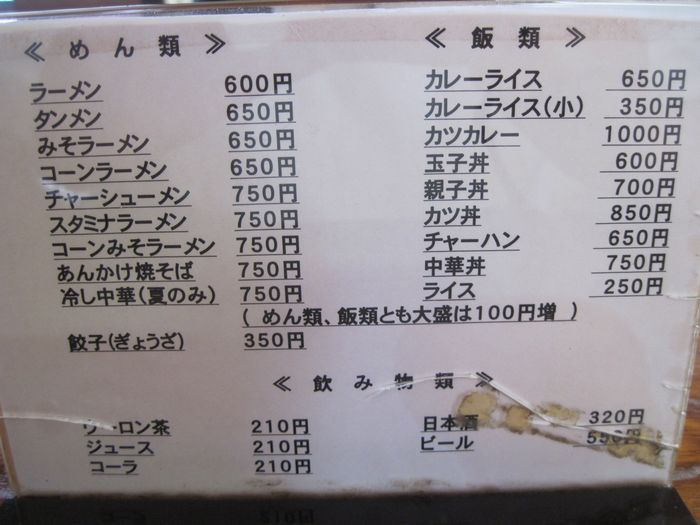 ≪ めん類 ≫
ラーメン 600円
タンメン 650円
みそラーメン 650円
コーンラーメン 650円
チャーシューメン 750円
スタミナラーメン 750円
コーンみそラーメン 750円
あんかけ焼そば 750円
冷し中華(夏のみ) 750円
≪ 飯類 ≫
カレーライス 650円
カレーライス(小) 350円
カツカレー 1000円
玉子丼 600円
親子丼 700円
カツ丼 850円
チャーハン 650円
中華丼 750円
ライス 250円
( めん類、飯類とも大盛は100円増 )
餃子(ぎょうざ) 350円
≪ 飲み物類 ≫
ウーロン茶 210円
ジュース 210円
コーラ 210円
日本酒 320円
ビール 550円